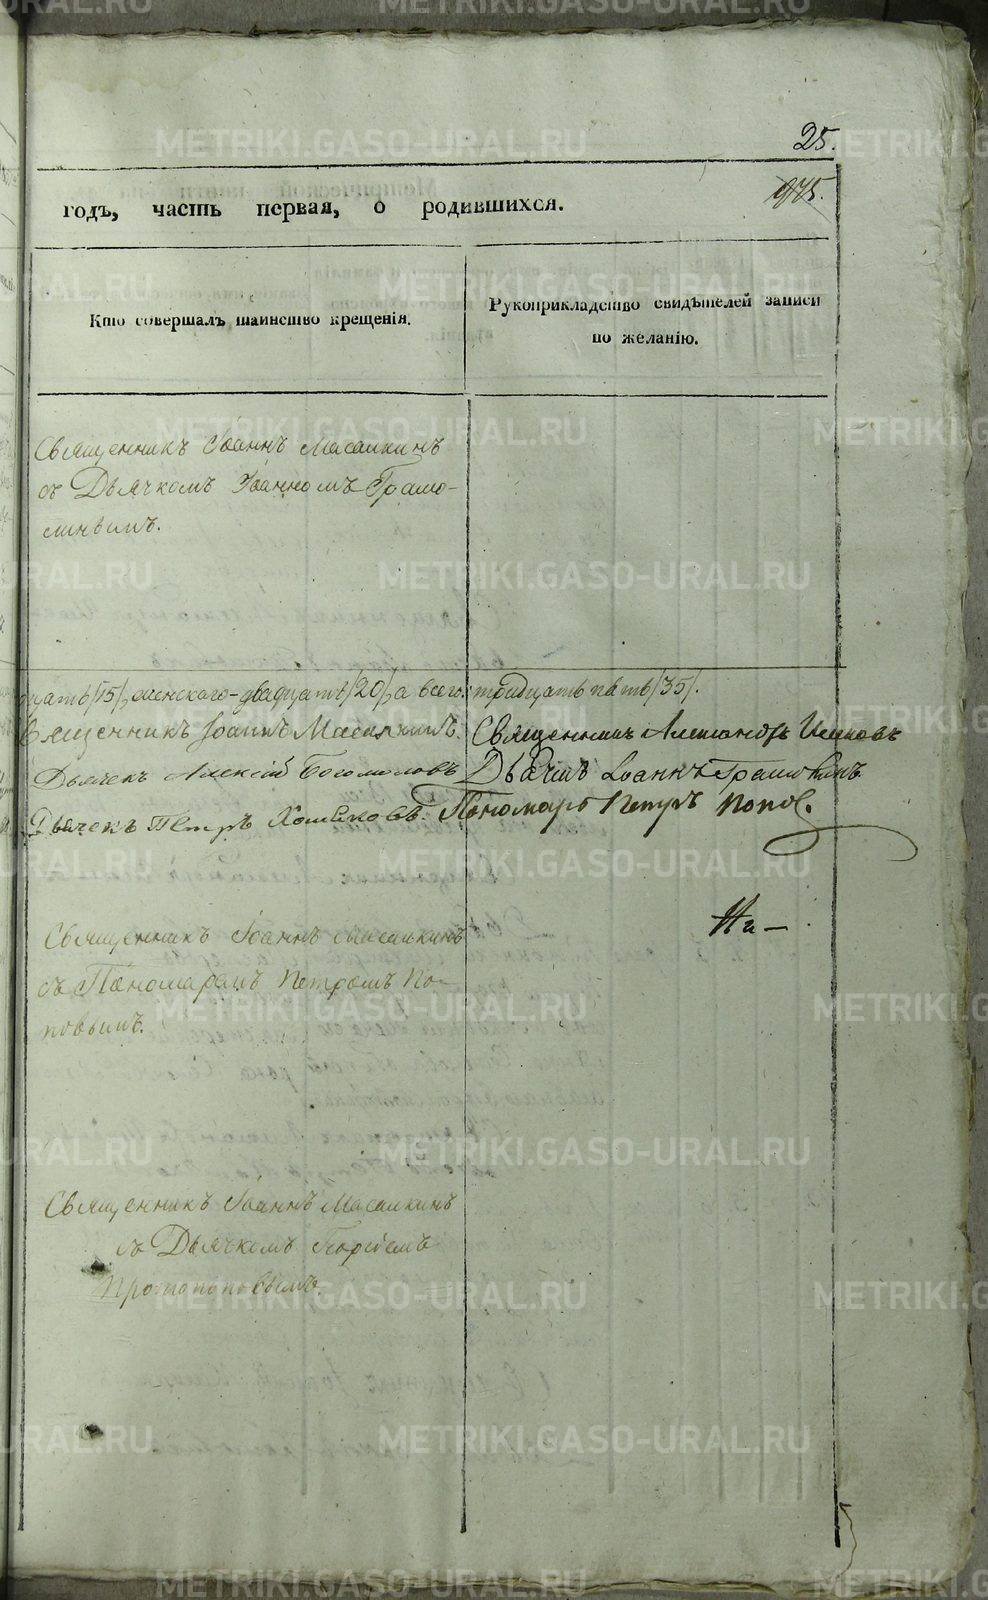 25.
975.
годъ, часть первая, о родившихся.
Кто совершалъ таинство крещенія.
Рукоприкладство свидѣтелей записи
по желанію.
Священникъ Іоаннъ Масалкинъ
съ Дьячкомъ Іоанномъ Грамо-
линымъ.
цать /15/, женскаго двадцать /20/, а всего тридцать пять /35/.
Священникъ Іоаннъ Масалкинъ. Священникъ Александръ
Дьячекъ Алексій Богомоловъ Дьячекъ Іоаннъ Грамолинъ
Дьячекъ Петръ Хомяковъ. Пономарь Петръ Попов.
На-
Священникъ Іоаннъ Масалкинъ
съ Пономаремъ Петромъ По-
повымъ.
Священникъ Іоаннъ Масалкинъ
съ Дьячкомъ Георгіемъ
Протопоповымъ.
METRIKI.GASO-URAL.RU